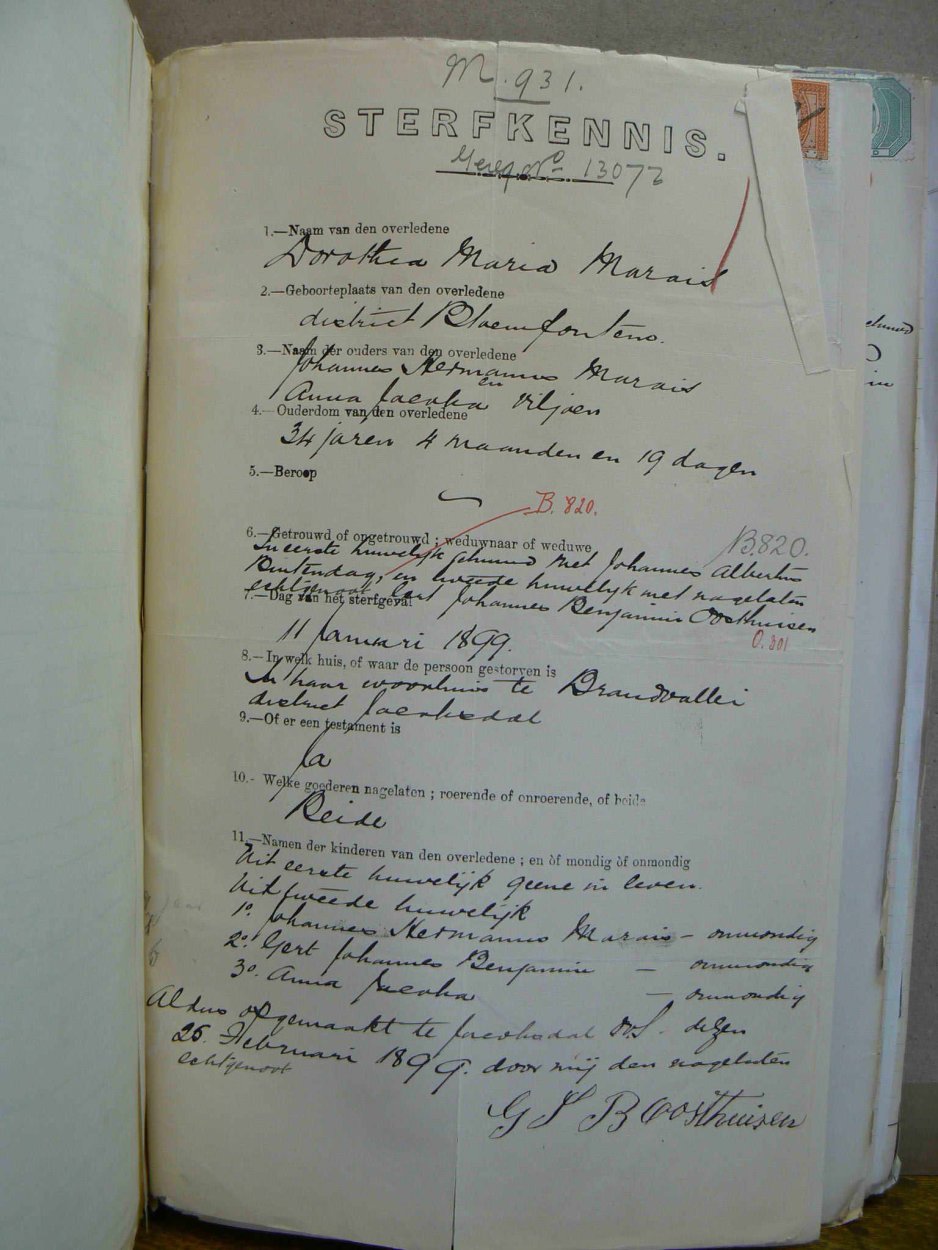 M. 931.
STERFKENNIS.
Gereg No 13073
1.—Naam van den overledene
Dorothea Maria Marais
2.—Geboorteplaats van den overledene
district Bloemfontein.
3.—Naam der ouders van den overledene
Johannes Hermanus Marais
en
Anna Jacoba Viljoen
4.—Ouderdom van den overledene
34 jaren 4 maanden en 19 dagen
5.—Beroop
B. 820.
B.820.
6.—Getrouwd of ongetrouwd ; weduwnaar of weduwe
In eerste huwelijk gehuwd met Johannes Albertus
Buitendag, en tweede huwelijk met nagelaten
echtgenoot Gert Johannes Benjamin Oosthuisen
7.—Dag van het sterfgeval
O. 801
11 Januari 1899.
8.—In welk huis, of waar de persoon gestorven is
In haar woonhuis te Brandvallei
district Jacobsdal
9.—Of er een testament is
Ja
10.- Welke goederen nagelaten ; roerende of onroerende, of beide
Beide
11.—Namen der kinderen van den overledene ; en òf mondig òf onmondig
Uit eerste huwelijk geene in leven.
Uit tweede huwelijk
1o. Johannes Hermanus Marais – onmondig
2o. Gert Johannes Benjamin — onmondig
3o. Anna Jacoba — onmondig
Aldus opgemaakt te Jacobsdal OVS. dezen
25. Februari 1899. door mij den nagelaten
echtgenoot
G J B Oosthuisen